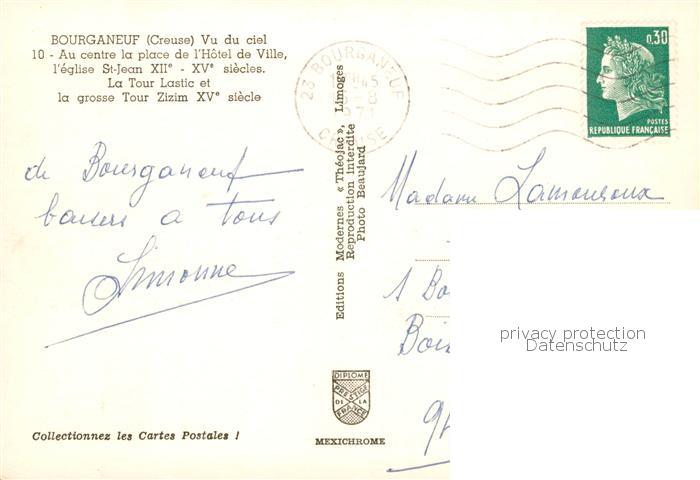 BOURGANEUF (Creuse) Vu du ciel
10 - Au centre la place de l'Hôtel de Ville,
l'église St-Jean XIIe - XVe siècles.
La Tour Lastic et
la grosse Tour Zizim XVe siècle
de Bourganeuf
baisers a tous
Simonne
Collectionnez les Cartes Postales !
Editions Modernes « Théojac », Limoges
Reproduction interdite
Photo Beaujard
DIPLOME
PRESTIGE
DE LA
FRANCE
MEXICHROME
23 BOURGANEUF
CREUSE
0,30
POSTES
REPUBLIQUE FRANÇAISE
Madame Lamouroux
1 Bo
privacy protection
Datenschutz